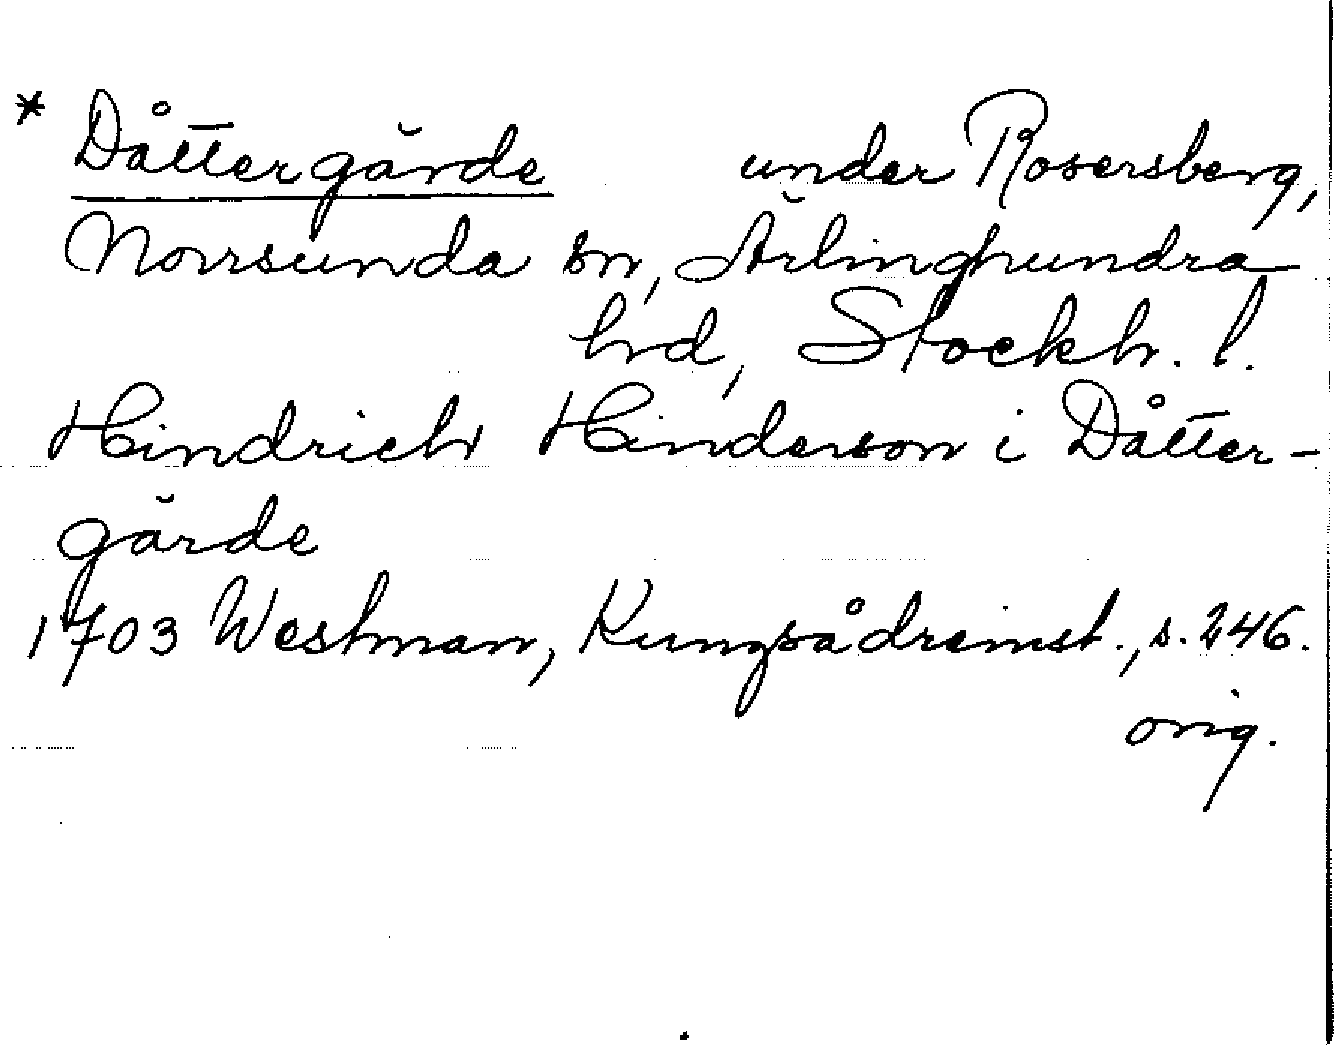 * Dåttergärde under Rosersberg,
Norrsunda sn, Ärlinghundra
hrd, Stockh. l.
Hindrich Hinderson i Dåtter-
gärde
1703 Westman, Kungsådreinst., s. 246.
orig.